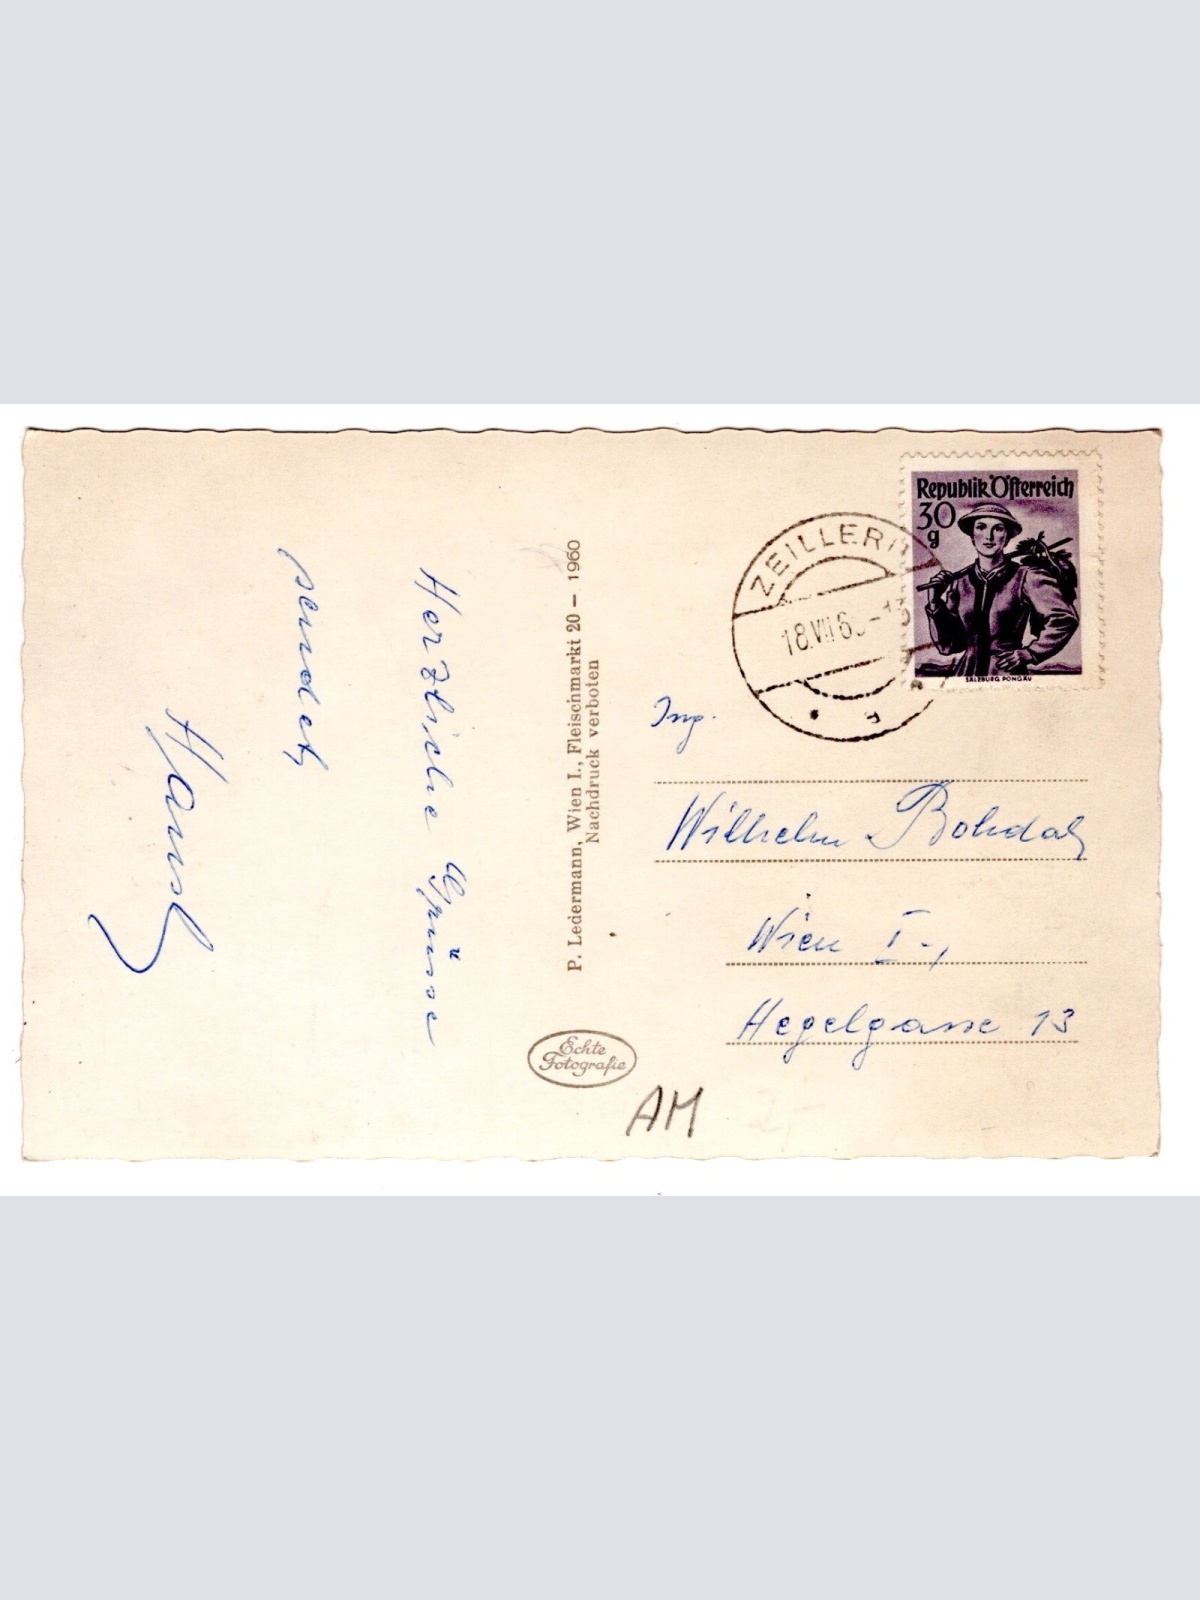 Herzliche Grüsse
sendet
Hansl
P. Ledermann, Wien I., Fleischmarkt 20 – 1960
Nachdruck verboten
Echte
Fotografie
ZEILLERN
18.VII.6 -13
Republik Österreich
30
g
SALZBURG, PONGAU
Ing.
Wilhelm Bohdal
Wien I.,
Hegelgasse 13
AM